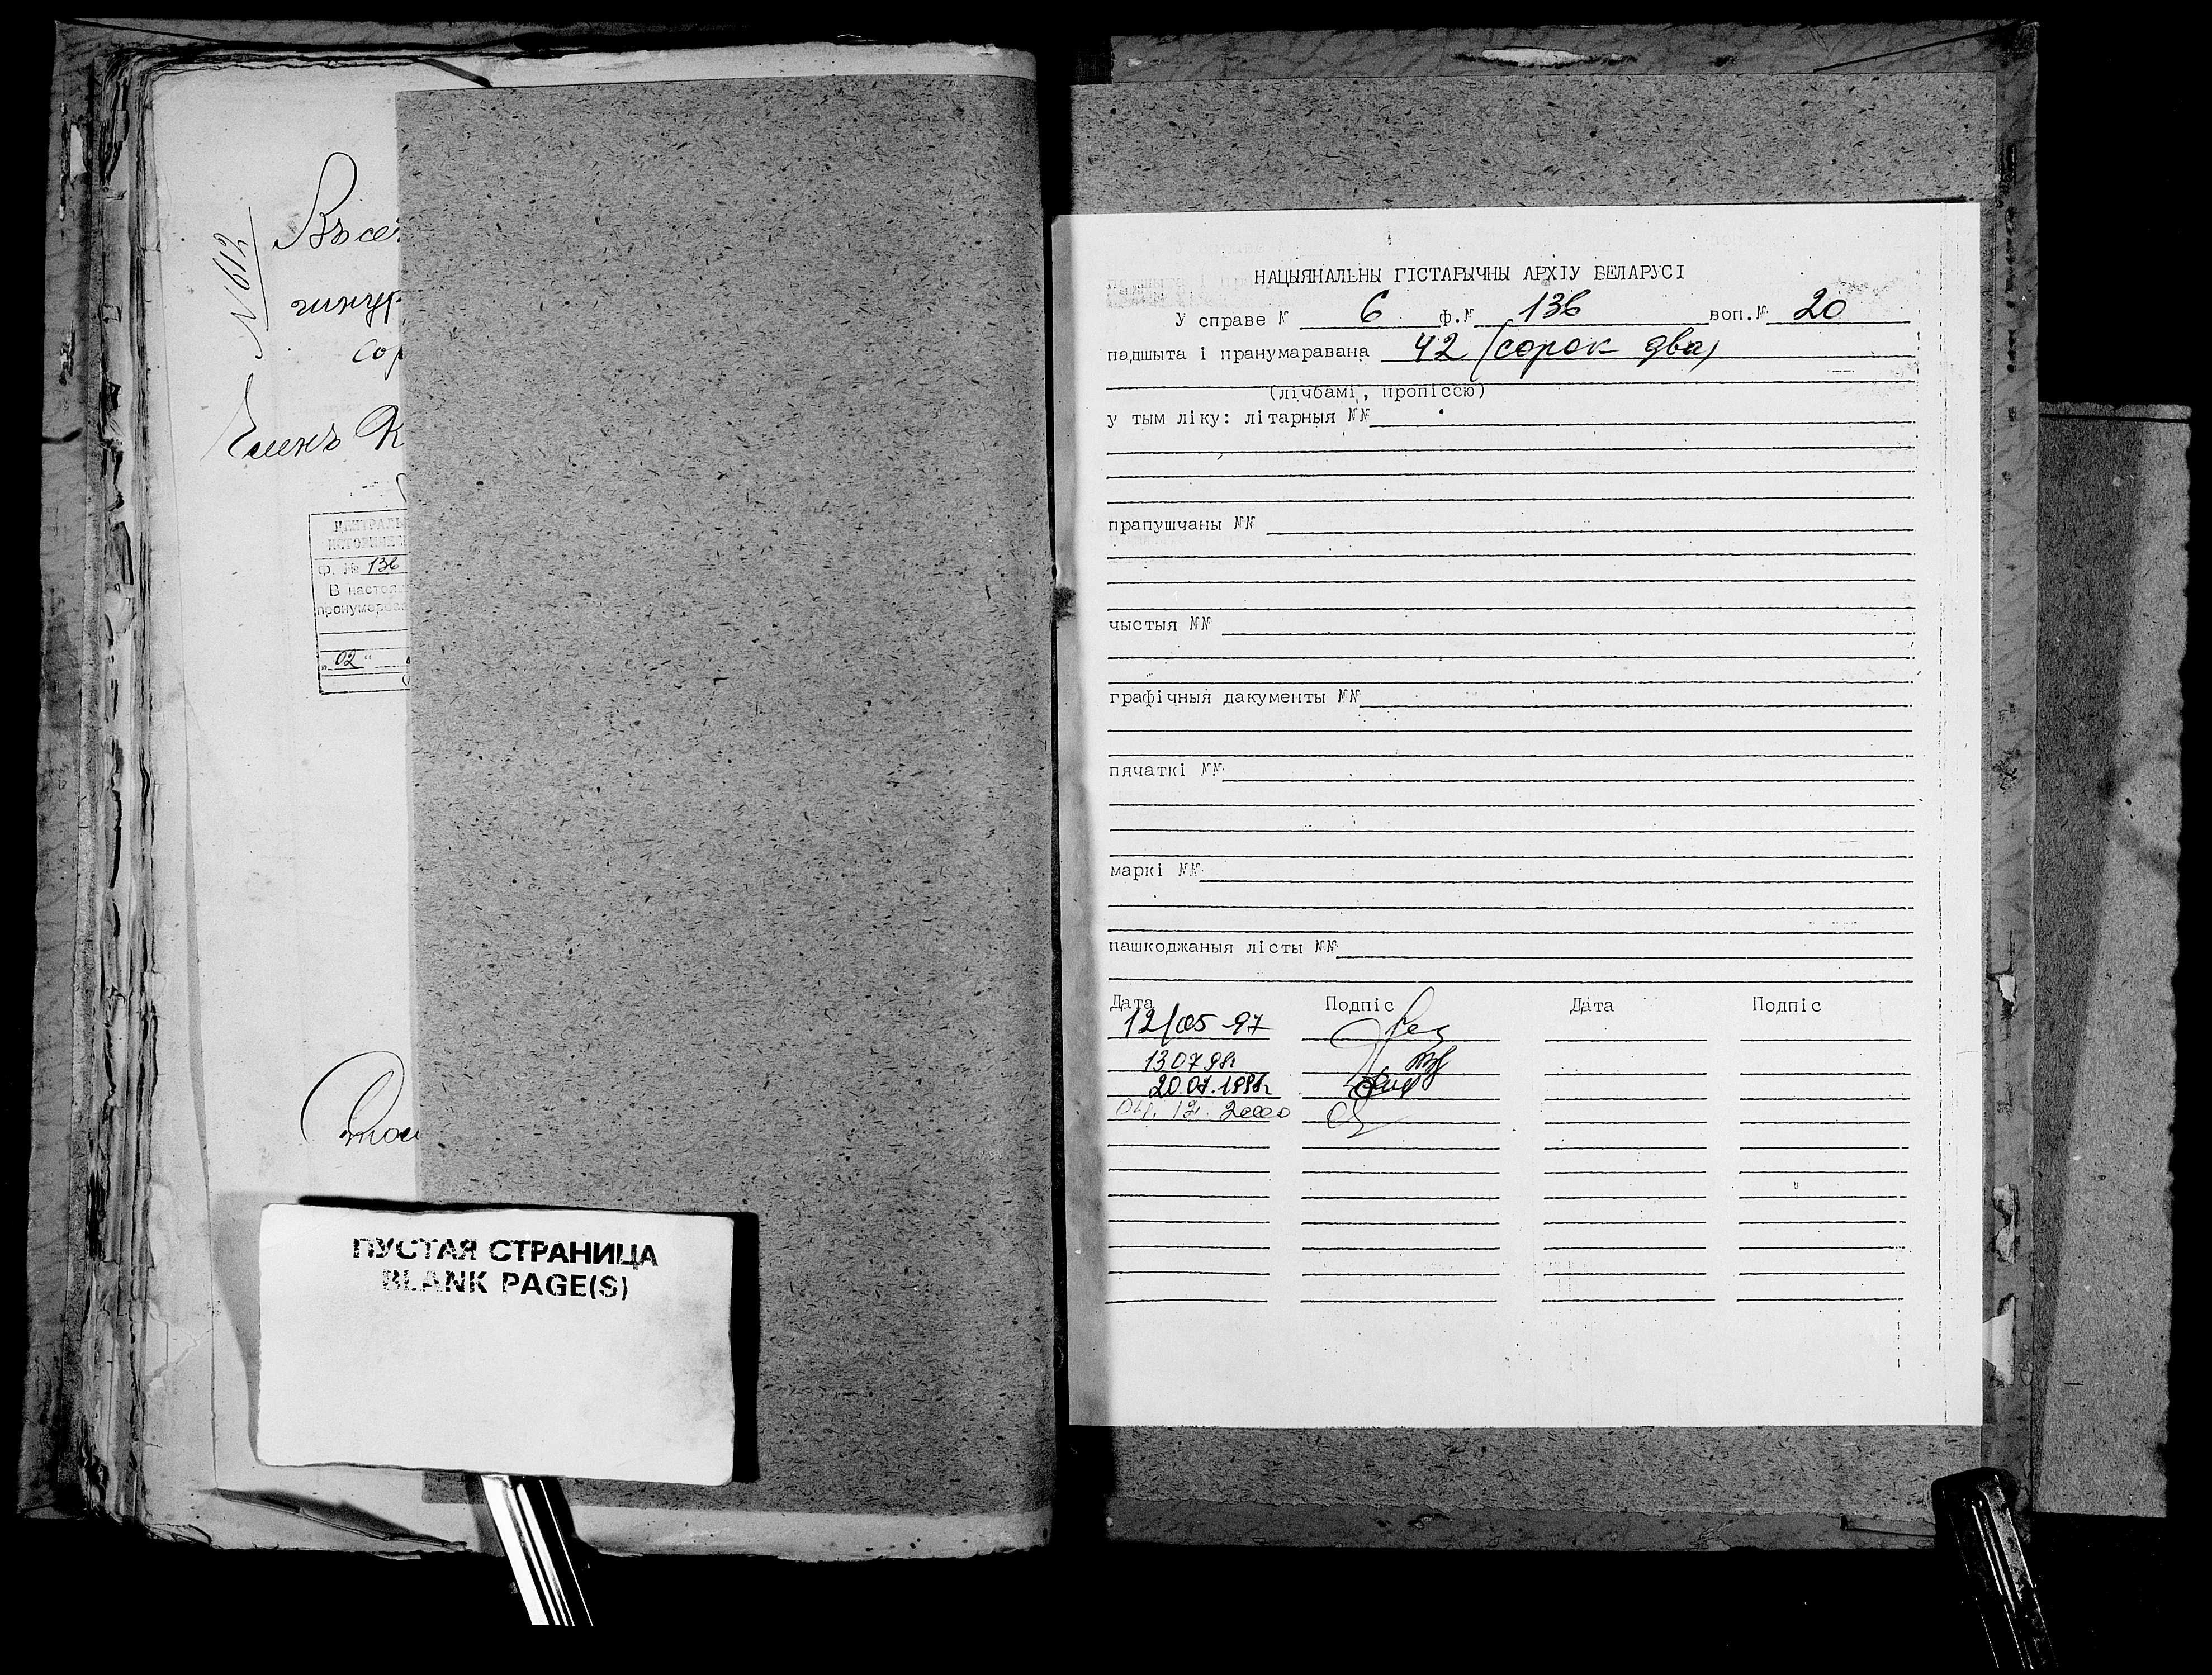 № 612
Въ се
шнур
со
Членъ К
ЦЕНТРАЛЬ
ИСТОРИЧЕС
Ф. № 136
В настоя
пронумеров
„ 02 “
ПУСТАЯ СТРАНИЦА
BLANK PAGE(S)
НАЦЫЯНАЛЬНЫ ГІСТАРЫЧНЫ АРХІУ БЕЛАРУСІ
У справе № 6 ф.№ 136 воп.№ 20
падшыта і пранумаравана 42 (сорок два)
(лічбамі, пропіссю)
у тым ліку: літарныя №№
прапушчаны №№
чыстыя №№
графічныя дакументы №№
пячаткі №№
маркі №№
пашкоджаныя лісты №№
Дата Подпіс Дата Подпіс
12/05-97
13 07 98г
20.07.1998г
04.12.2000